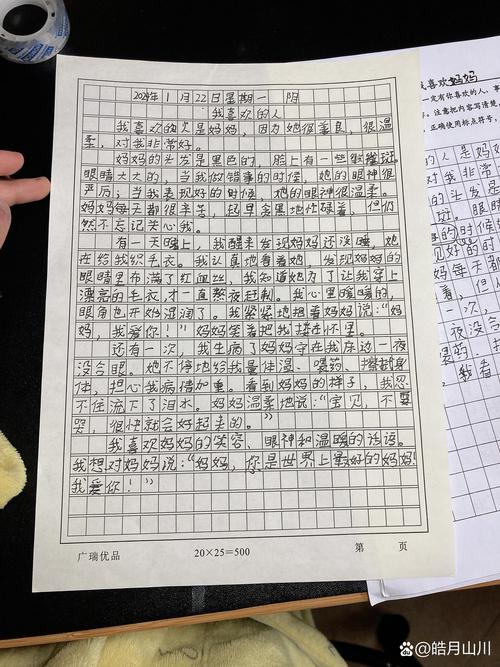 2024年1月22日星期一 阴
我喜欢的人
我喜欢的人是妈妈，因为她很善良，很温
柔，对我非常好。
妈妈的头发是黑色的，脸上有一些斑，
眼睛大大的，当我做错事的时候，她的眼神很
严厉；当我表现好的时候，她的眼神很温柔。
妈妈每天都很辛苦，起早贪黑地忙碌着，但仍
然不忘记关心我。
有一天晚上，我醒来发现妈妈还没睡，她
在给我织毛衣。我认真地看着她，发现妈妈的
眼睛里布满了红血丝，我知道她为了让我穿上
漂亮的毛衣，才一直熬夜赶制。我心里暖暖的，
眼角也开始湿润了。我紧紧地抱着妈妈说：“妈
妈，我爱你！”妈妈笑着把我搂在怀里。
还有一次，我生病了妈妈守在我床边一夜
没合眼。她不停地给我量体温、喂药、擦身
体，担心我病情加重。看到妈妈的样子，我忍
不住流下了泪水。妈妈温柔地说：“宝贝，不要
哭，很快就会好起来的。”
我喜欢妈妈的笑容、眼神和温暖的话语。
我想对妈妈说：“妈妈，你是世界上最好的妈妈！
我爱你！”
广瑞优品 20×25=500 第 页
我喜欢妈妈
一定有你喜欢的人、事
注意把内容写清楚
正确使用标点符号
的人是妈
对我非常
的头发是
的时候
见好的时
妈每天
着，但
一次，
夜没合
喂药
，我看
@皓月山川